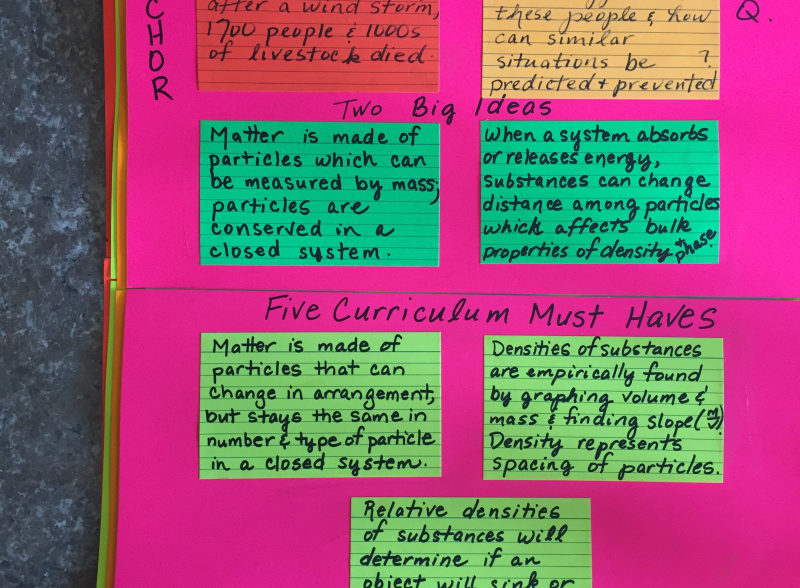 C
H
O
R
after a wind storm,
1700 people & 1000s
of livestock died.
these people & how
can similar
situations be ?
predicted + prevented
Q.
Two Big Ideas
Matter is made of
particles which can
be measured by mass;
particles are
conserved in a
closed system.
When a system absorbs
or releases energy,
substances can change
distance among particles
which affects bulk
properties of density + phase
Five Curriculum Must Haves
Matter is made of
particles that can
change in arrangement,
but stays the same in
number & type of particle
in a closed system.
Densities of substances
are empirically found
by graphing volume &
mass & finding slope (m/v).
Density represents
spacing of particles.
Relative densities
of substances will
determine if an
object will sink or